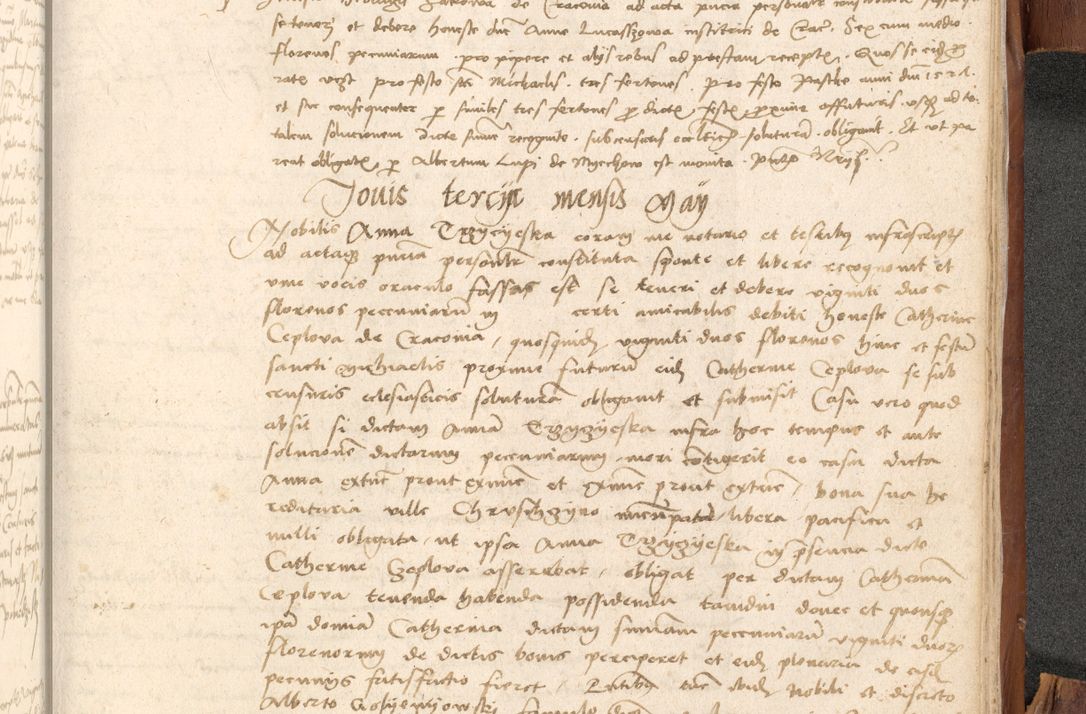 se teneri et debere honeste dne Anne Lucassowa institrici de Crac. Sex cum medio
florenos pecuniarum pro pipere et alijs rebus ad prestam receptis. Quos se eidem
rate vigt pro festo sti Michaelis tres fertones. pro festo Pasche anni dni 1 5 5 1.
et sic consequenter per similes tres fertones pro dictis festis proxime affuturis usque ad to
talem solucionem dicte summe recognite sub censuris ecclesticis soluturam obligavit. Et ut pa
reat obligatis per Albertum Lupi de Myechow est monita. pntibus
Jovis tercia mensis May
Nobilis Anna Trzyczyeska coram me notario et testibus infrascriptis
ad actaque pncia personalr constituta sponte et libere recognovit et
vive vocis oraculo fassas est se teneri et debere viginti duos
florenos pecuniarum in certi amicabilis debiti honeste Catherine
Ceplova de Cracovia, quosquidem viginti duos florenos hinc et festum
sancti Michaelis proxime futurum eidem Catherine Ceplova se sub
censuris eclesiasticis soluturam obligavit et submisit Casu vero quod
absit si dictam Annam Trzyczyeska infra hoc tempus et ante
solucionem dictarum pecuniarum mori contigerit eo casu dicta
Anna extunc prout exnunc et exnunc prout extunc, bona sua he
reditaria ville Chruschzyno nuncupate libera pacifica et
nulli obligata, ut ipsa Anna Trzyczyeska in psencia dicte
Catherine Czeplova asserebat, obligat per dictam Catherinam
Ceplova tenenda habenda possidenda tamdiu donec et quousque
ipsa domina Catherina dictam summam pecuniarum viginti duorum
florenorum de dictis bonis perciperet et eidem plenaria de eisdem
pecuniis satisfactio fieret, Pntibus tunc ibidem Nobili et discreto
Alberto